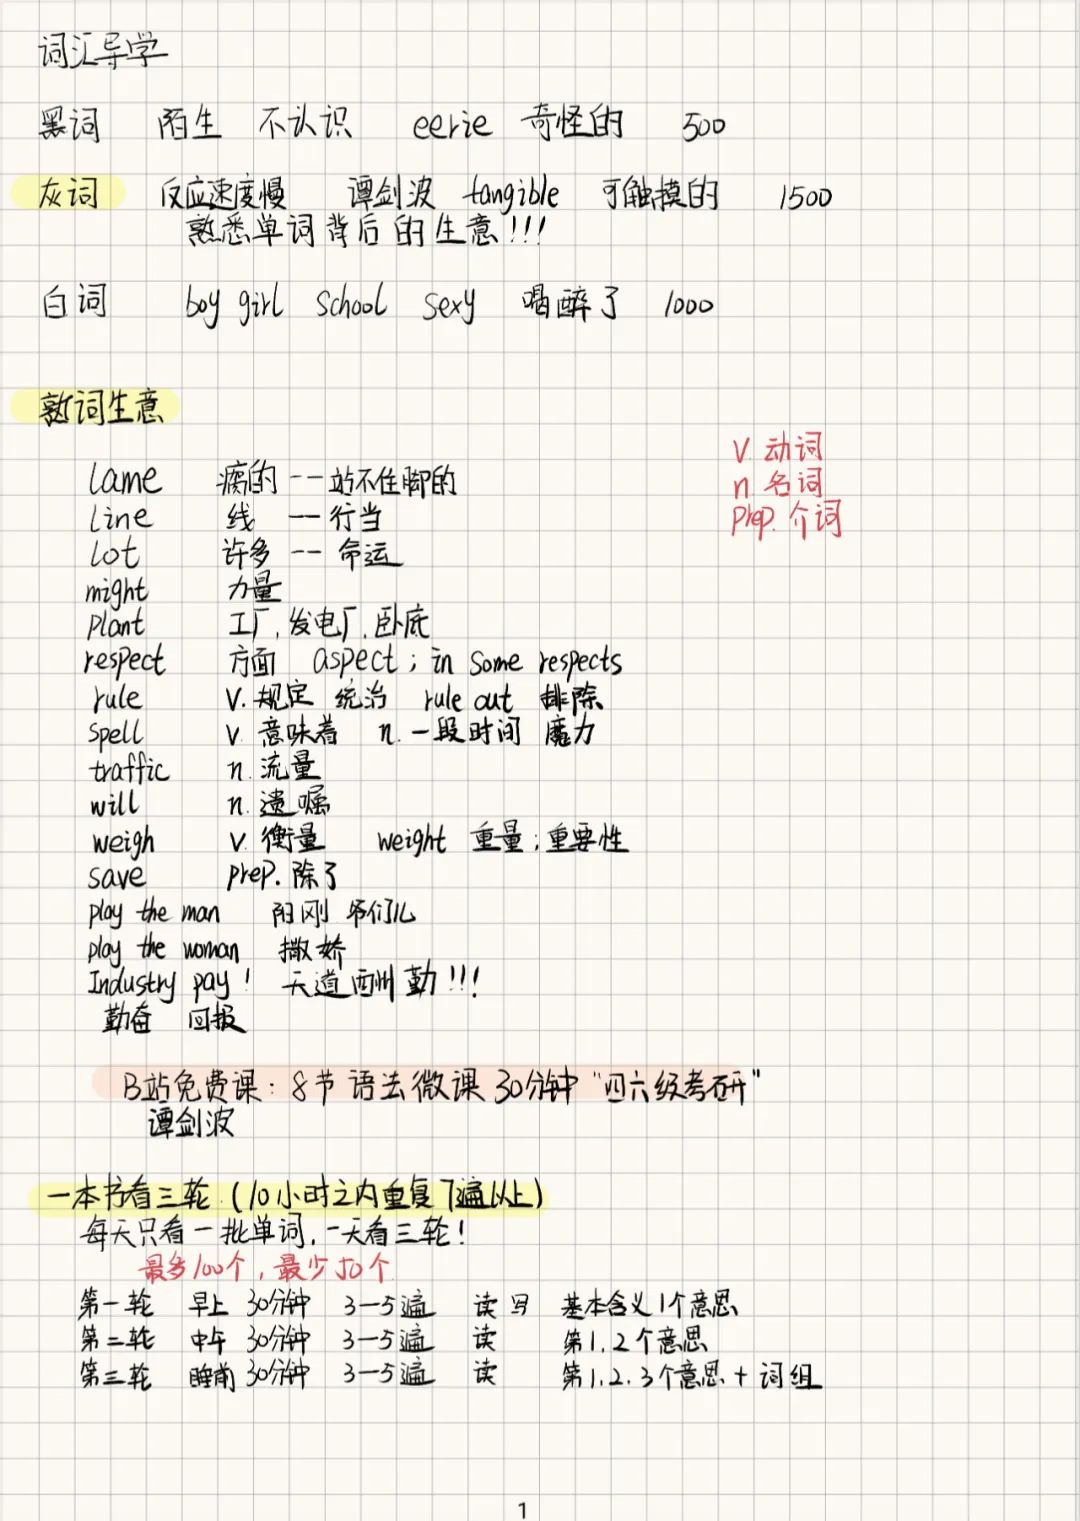 词汇导学
黑词 陌生 不认识 eerie 奇怪的 500
灰词 反应速度慢 谭剑波 tangible 可触摸的 1500
熟悉单词背后的生意!!!
白词 boy girl school sexy 喝醉了 1000
熟词生意
v. 动词
n 名词
prep. 介词
lame 瘸的 -- 站不住脚的
line 线 — 行当
lot 许多 -- 命运
might 力量
plant 工厂, 发电厂, 卧底
respect 方面 aspect; in some respects
rule v. 规定 统治 rule out 排除
spell v. 意味着 n. 一段时间 魔力
traffic n. 流量
will n. 遗嘱
weigh v. 衡量 weight 重量; 重要性
save prep. 除了
play the man 阳刚 爷们儿
play the woman 撒娇
Industry pay! 天道酬勤!!!
勤奋 回报
B站免费课: 8节语法微课 30分钟 "四六级考研"
谭剑波
一本书看三轮 (10小时之内重复7遍以上)
每天只看一批单词, 一天看三轮!
最多100个, 最少50个
第一轮 早上 30分钟 3—5遍 读写 基本含义1个意思
第二轮 中午 30分钟 3—5遍 读 第1, 2个意思
第三轮 睡前 30分钟 3—5遍 读 第1. 2. 3个意思 + 词组
1